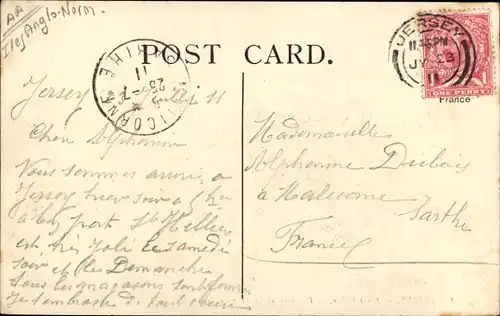 AA
Iles Anglo-Norm.
POST CARD.
JERSEY
11.45PM
JY 23
11
ONE PENNY
France
LICORNE
SARTHE
25-7
11
Jersey Juillet 11
Cher Alphonse
Vous sommes arrivés à
Jersey hier soir à 5 h
le port St Hellier
est très Joli ce samedi
soir et le Dimanche
tous les magasons sont fermés
Je t'embrasse de tout cœur
Mademoiselle
Alphonse Dubois
à Malicorne
Sarthe
France